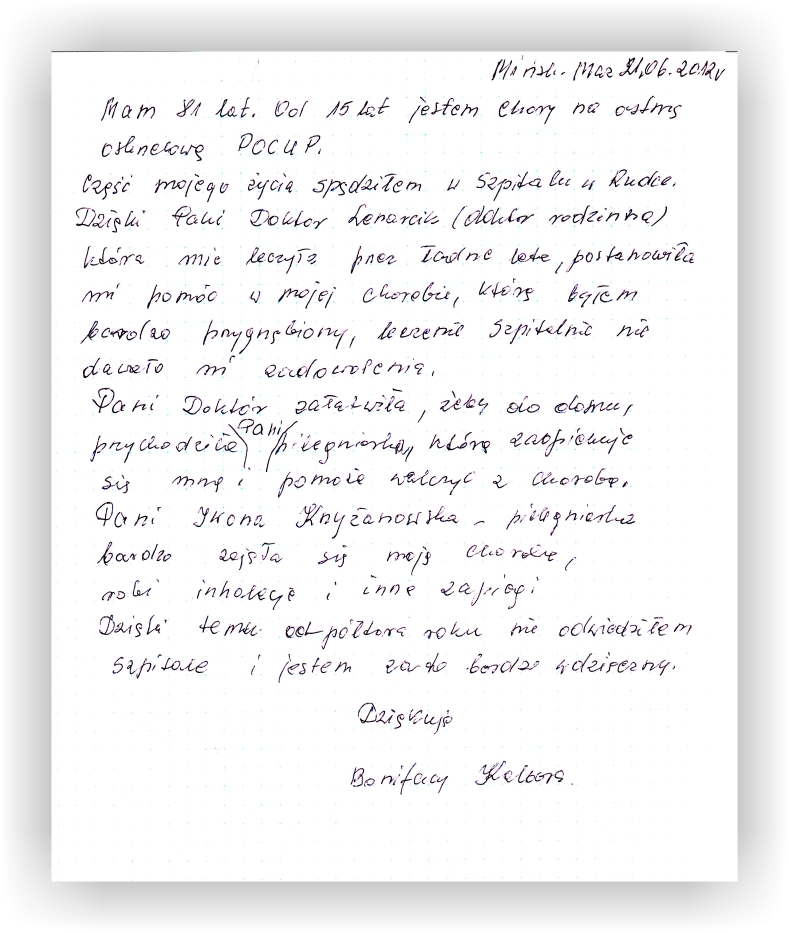 Mińsk. Maz 21,06.2012r
Mam 81 lat. Od 15 lat jestem chory na ostrą
oskrelową POCUP.
Część mojego życia spędziłem w Szpitalu w Rudce.
Dzięki Pani Doktor Lenarcik (doktór rodzinna)
która mie leczyła przez ładne lata, postanowiła
mi pomóc w mojej chorobie, którą byłem
bardzo przygnębiony, leczenie Szpitalnie nie
dawało mi zadowolenia.
Pani Doktór załatwiła, żeby do domu,
przychodziła Pani pielęgniarka, którą zaopiekuje
się mną i pomoże walczyć z chorobą.
Pani Iwona Knyżanowska - pielęgniarka
bardzo zajęła się moją chorobą,
robi inholacje i inne zapiegi
Dzięki temu od półtora roku nie odwiedziłem
Szpitale i jestem za to bardzo wdzięczny.
Dziękuję
Bonifacy